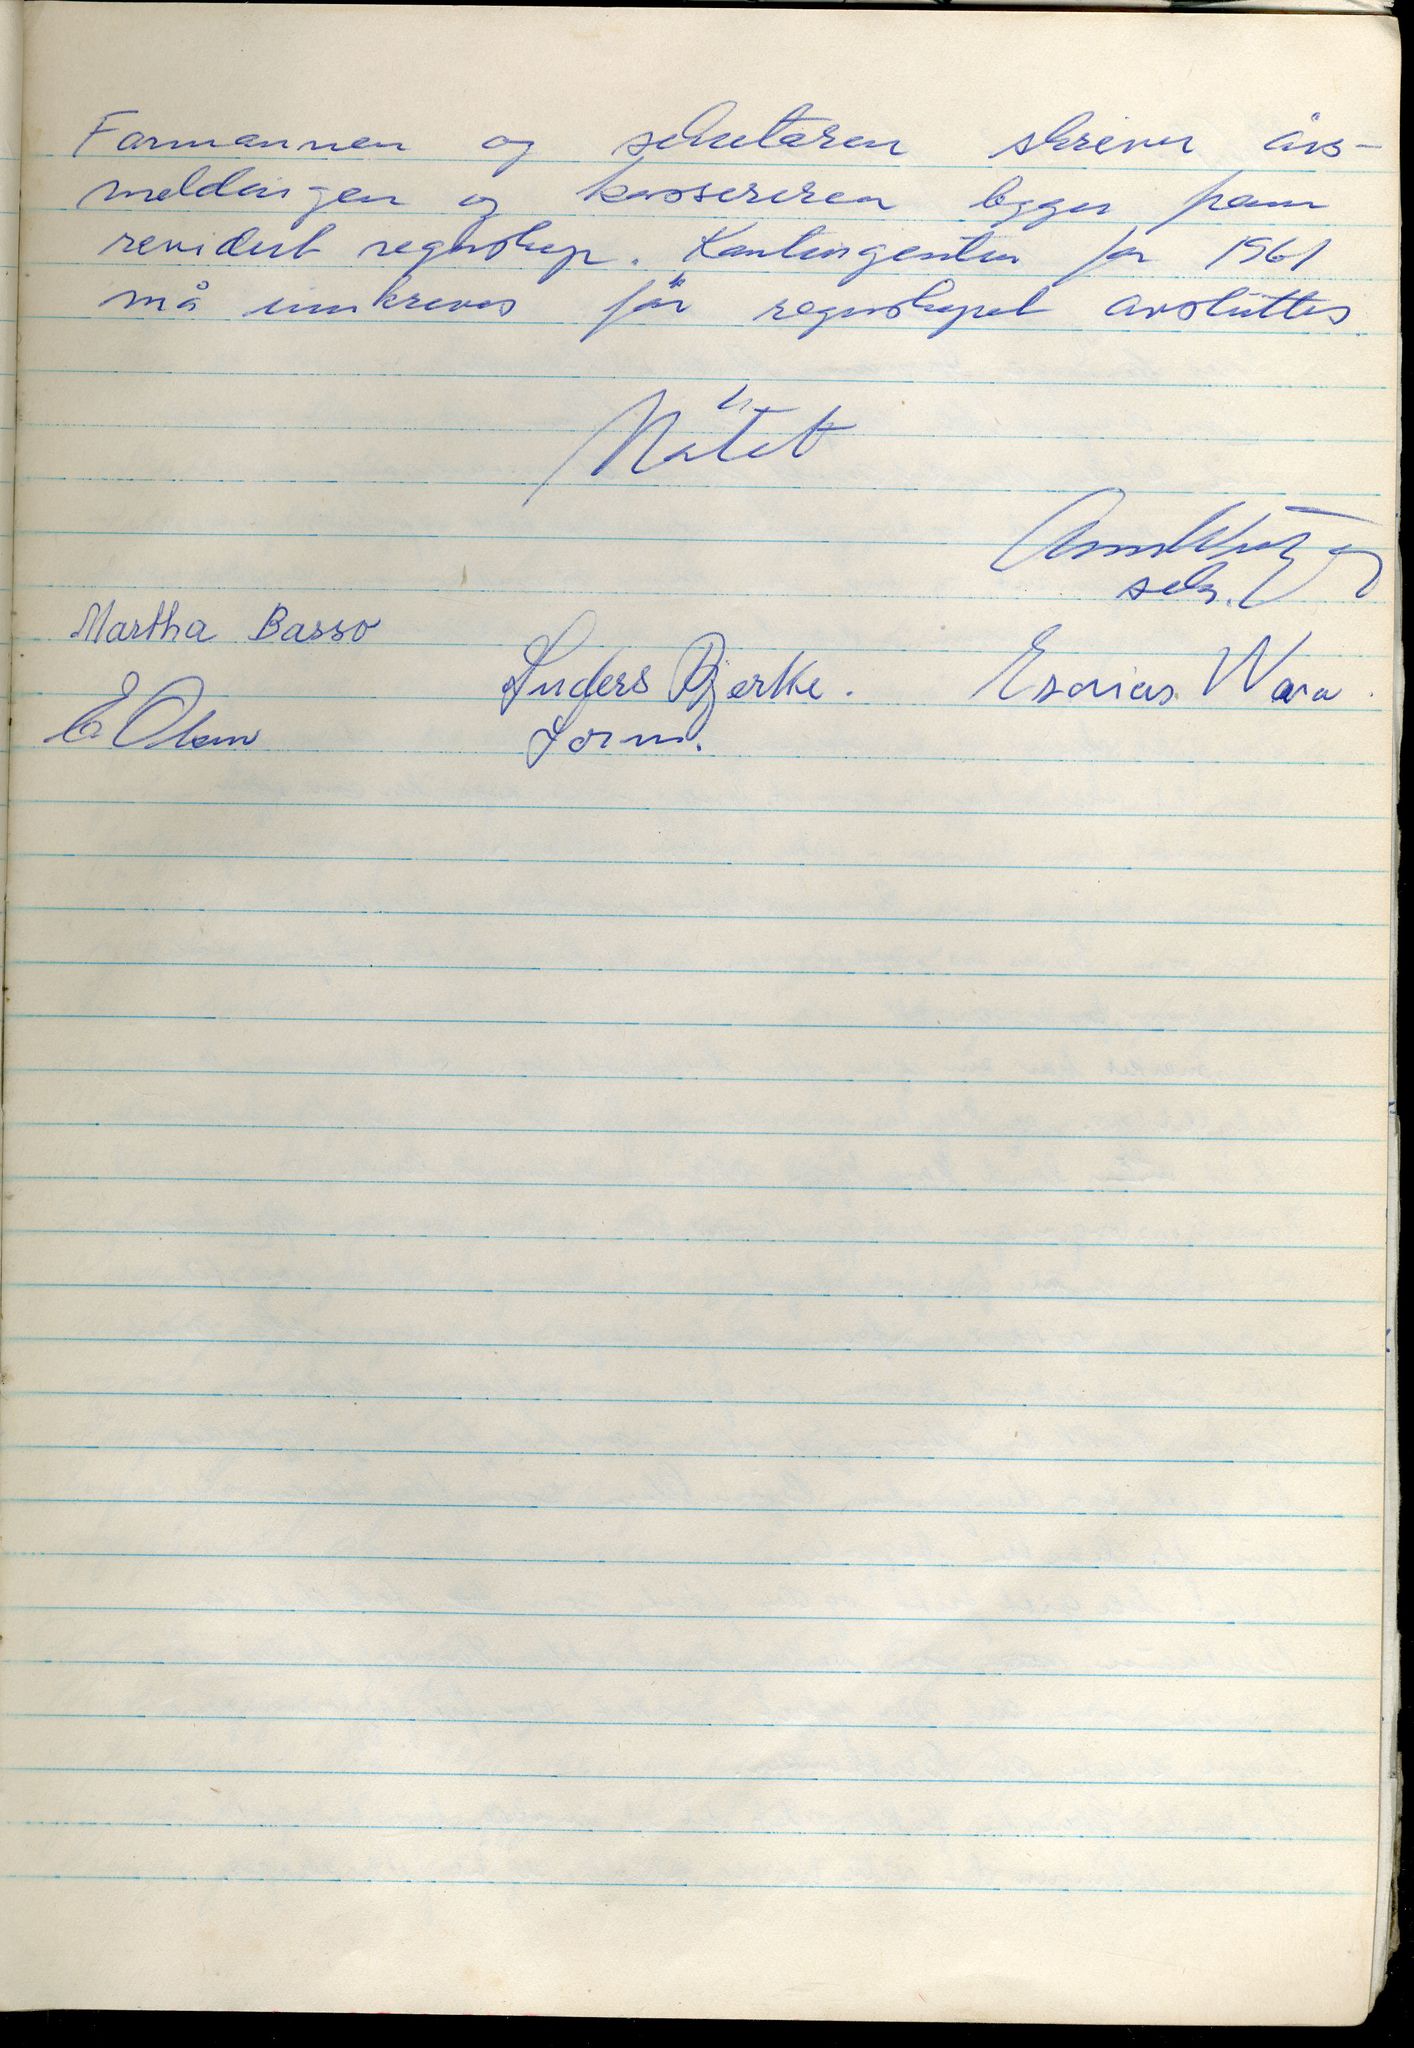 Formannen og sekretæren skriver års-
meldingen og kassereren legger fram
revidert regnskap. Kontingenten for 1961
må innkreves før regnskapet avsluttes
Møtet
sekr.
Martha Basso
Anders Bjerke. Esaias Wara.
E Olsen
Form.